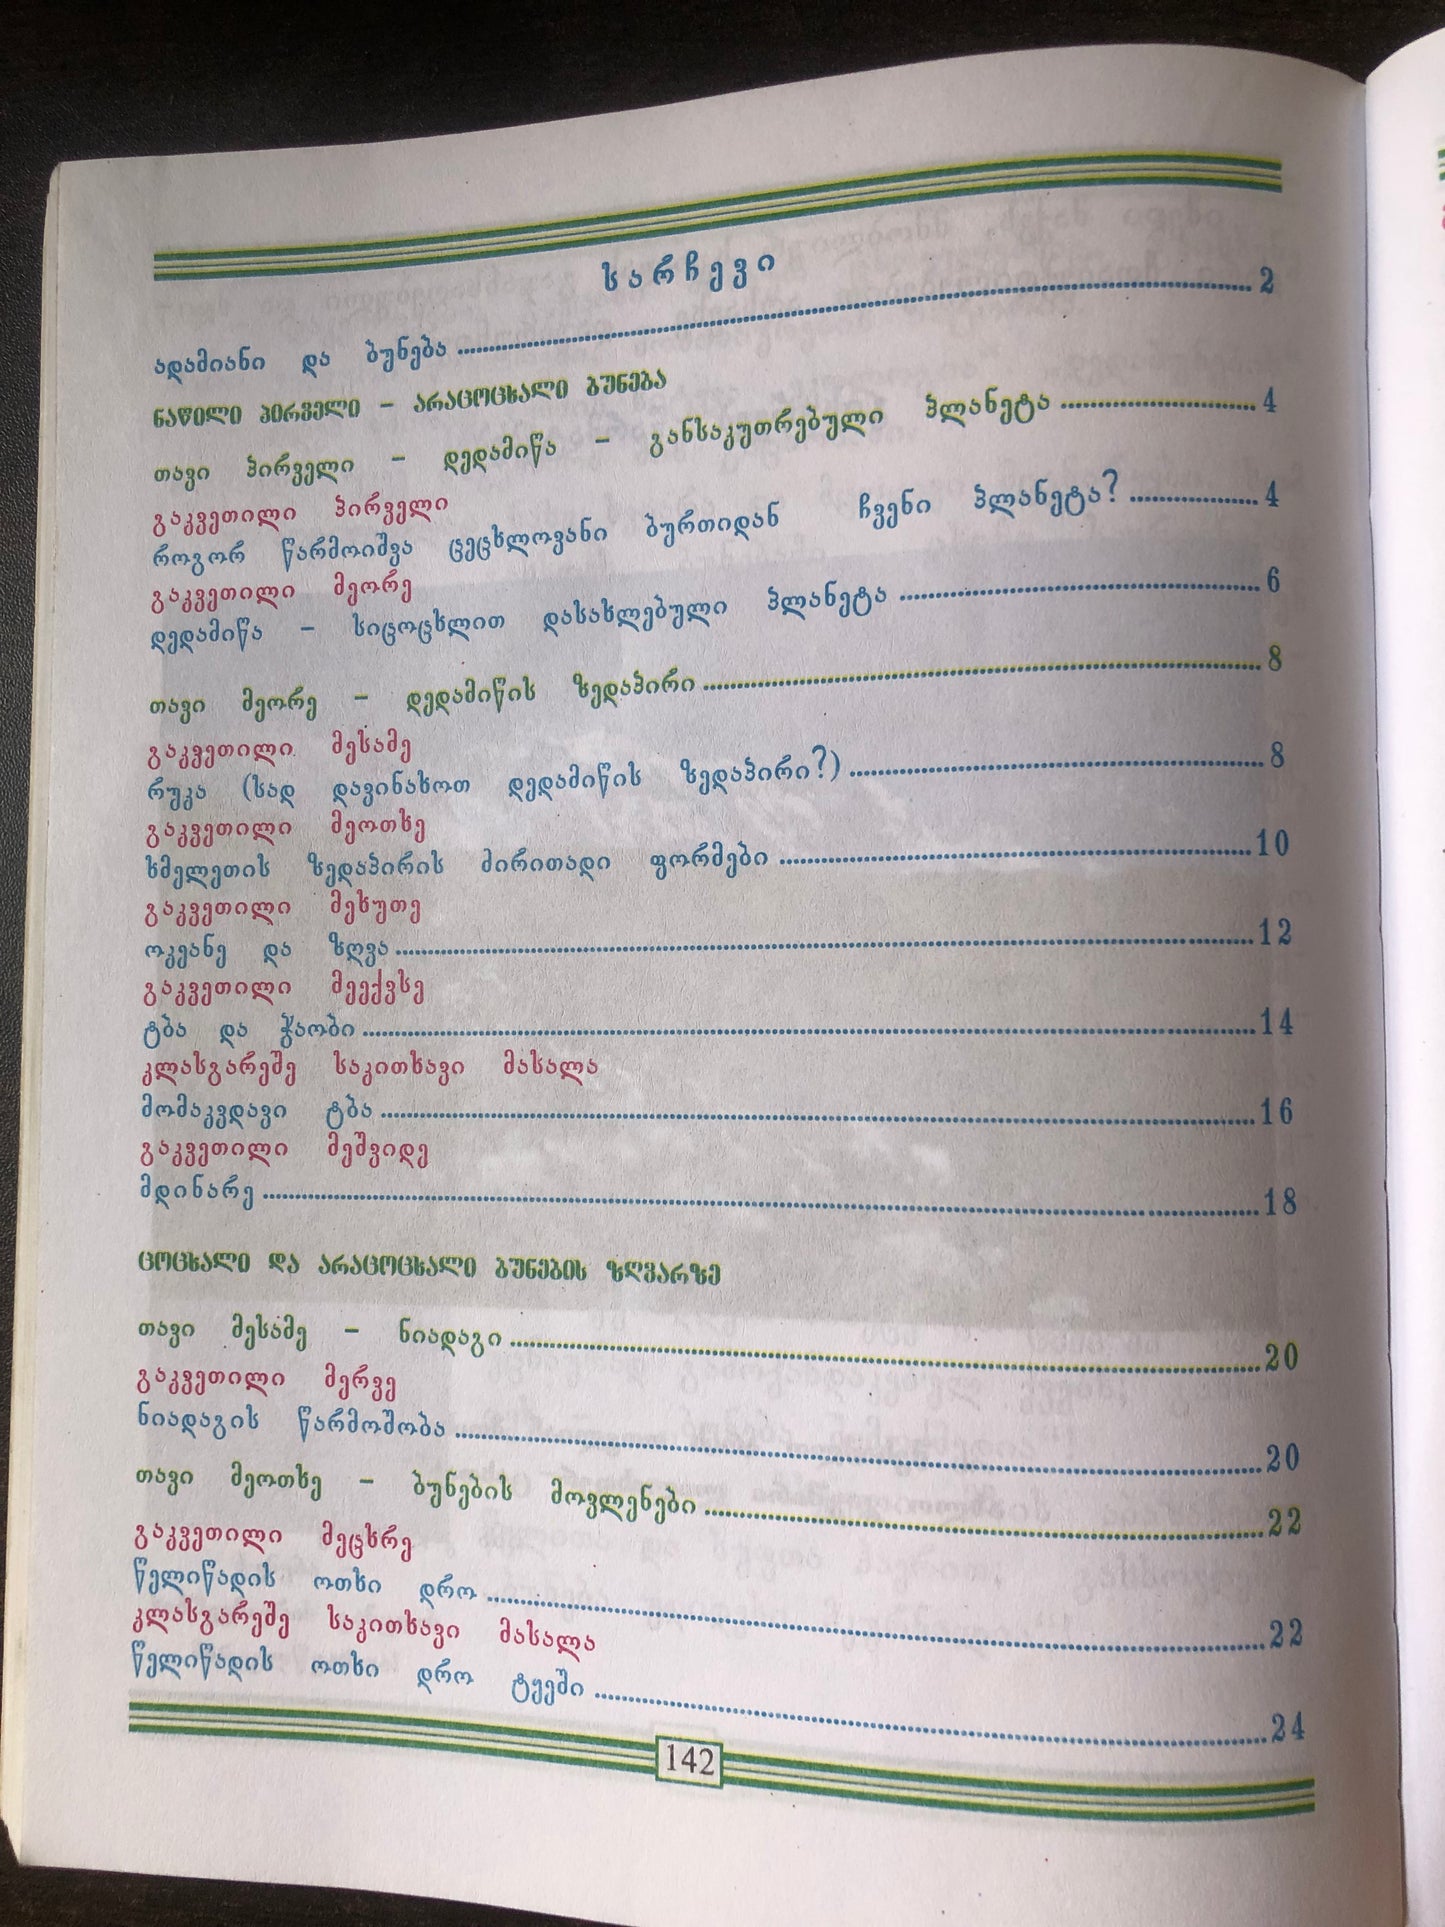 სარჩევი
ადამიანი და ბუნება 2
ნაწილი პირველი – არაცოცხალი ბუნება
თავი პირველი – დედამიწა – განსაკუთრებული პლანეტა 4
გაკვეთილი პირველი
როგორ წარმოიშვა ცეცხლოვანი ბურთიდან ჩვენი პლანეტა? 4
გაკვეთილი მეორე
დედამიწა – სიცოცხლით დასახლებული პლანეტა 6
თავი მეორე – დედამიწის ზედაპირი 8
გაკვეთილი მესამე
რუკა (სად დავინახოთ დედამიწის ზედაპირი?) 8
გაკვეთილი მეოთხე
ხმელეთის ზედაპირის ძირითადი ფორმები 10
გაკვეთილი მეხუთე
ოკეანე და ზღვა 12
გაკვეთილი მეექვსე
ტბა და ჭაობი 14
კლასგარეშე საკითხავი მასალა
მომაკვდავი ტბა 16
გაკვეთილი მეშვიდე
მდინარე 18
ცოცხალი და არაცოცხალი ბუნების ზღვარზე
თავი მესამე – ნიადაგი 20
გაკვეთილი მერვე
ნიადაგის წარმოშობა 20
თავი მეოთხე – ბუნების მოვლენები 22
გაკვეთილი მეცხრე
წელიწადის ოთხი დრო 22
კლასგარეშე საკითხავი მასალა
წელიწადის ოთხი დრო ტყეში 24
142